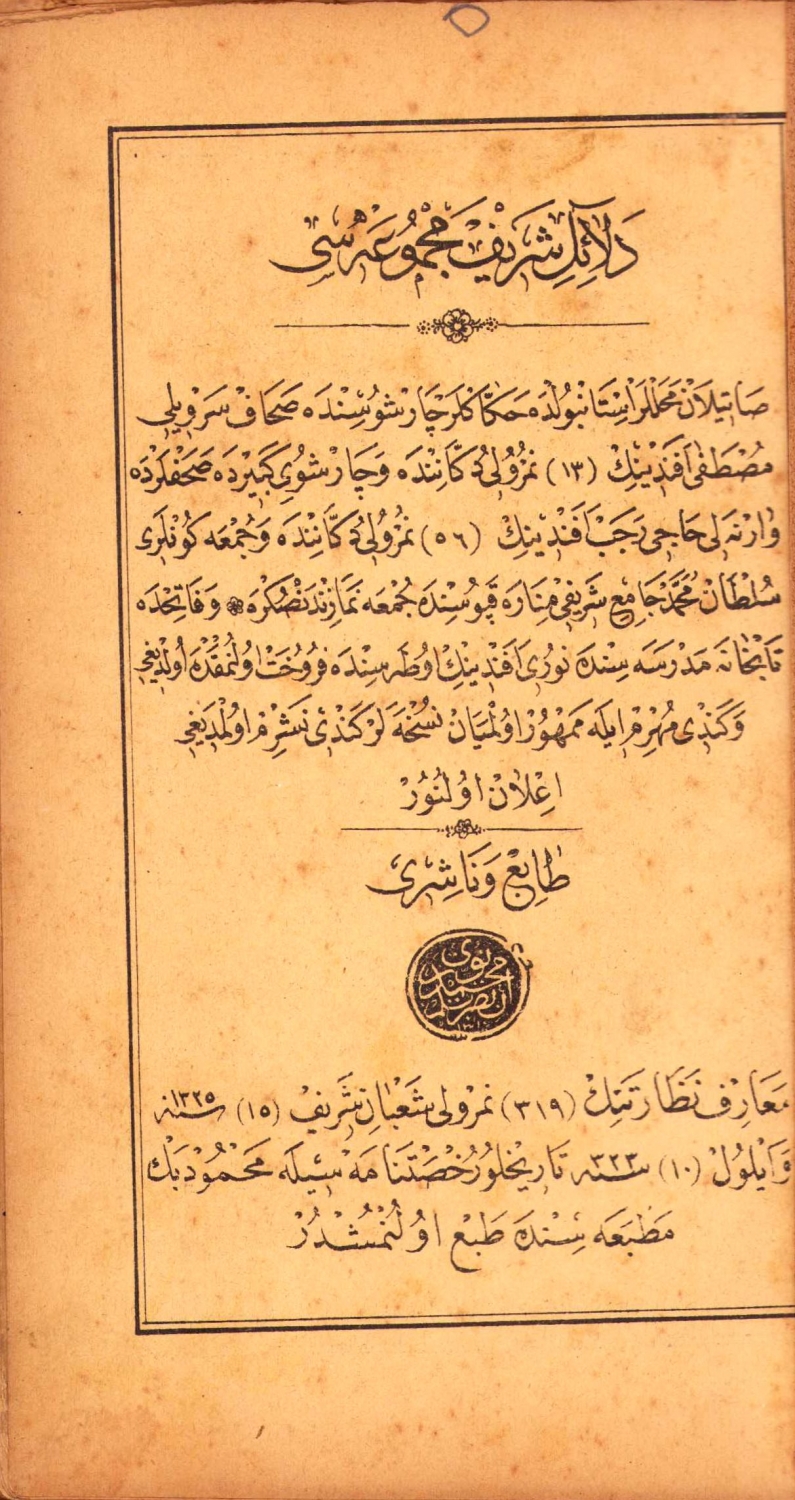 دَلَائِلِ شَرِيفْ مَجْمُوعَه‌سِى
صَاتِيلَانْ مَحَلْلَرْ اِسْتَانْبُولْدَه حَكَّاكْلَرْ چَارْشُوسِنْدَه صَحَافْ سَرْوِيلِى
مُصْطَفٰى اَفَنْدِينِكْ (١٣) نُمْرُولِى دُكَّانِنْدَه وَچَارْشُوىِ كَبِيرْدَه صَحَّفْلَرْدَه
وَارْنَه‌لِى حَاجِى رَجَبْ اَفَنْدِينِكْ (٥٦) نُمْرُولِى دُكَّانِنْدَه وَجُمْعَه كُونْلَرِى
سُلْطَانْ مُحَمَّدْ جَامِعِ شَرِيفِى مِنَارَه قَپُوسِنْدَه جُمْعَه نَمَازِنْدَنْصُكْرَه ❁ وَفَاتِحْدَه
تَابْخَانَه مَدْرَسَه‌سِنْدَه نُورِى اَفَنْدِينِكْ اوُطَه‌سِنْدَه فُرُوخْتْ اوُلُنْمَقْدَه اوُلْدِيغِى
وَكَنْدِى مُهْرِمْ ايلَه مَمْهُورْ اوُلْمَيَانْ نُسْخَه‌لَرْ كَنْدِى نَشْرِمْ اوُلْمَدِيغِى
اِعْلَانْ اوُلُنُورْ
طَابِعْ وَنَاشِرِى
مَعَارِفْ نَظَارَتِنِكْ (٣١٩) نُمْرُولِى شَعْبَانِ شَرِيفْ (١٥) سنه ١٣٢٥
وَاَيْلُولْ (١٠) سنه ٣٢٣ تَارِيخْلُو رُخْصَتْنَامَه‌سِيلَه مَحْمُودْ بَكْ
مَطْبَعَه‌سِنْدَه طَبْع اوُلُنْمُشْدُرْ